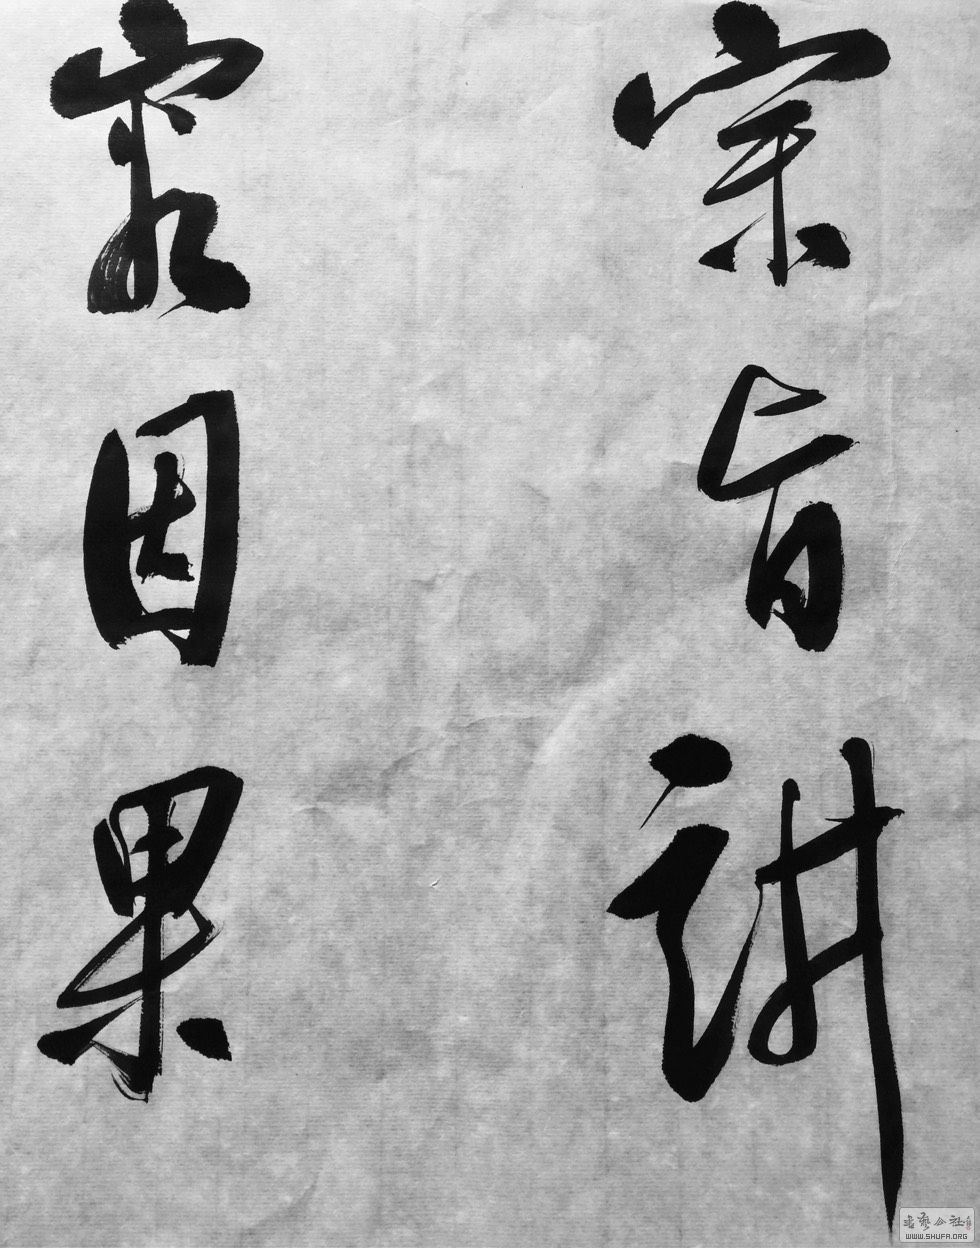 宗旨讲
究因果
书艺公社
WWW.SHUFA.ORG